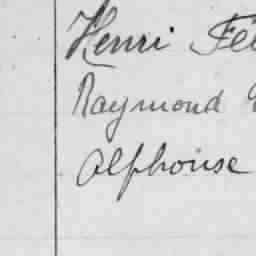 Henri Fel
Raymond
Alphonse